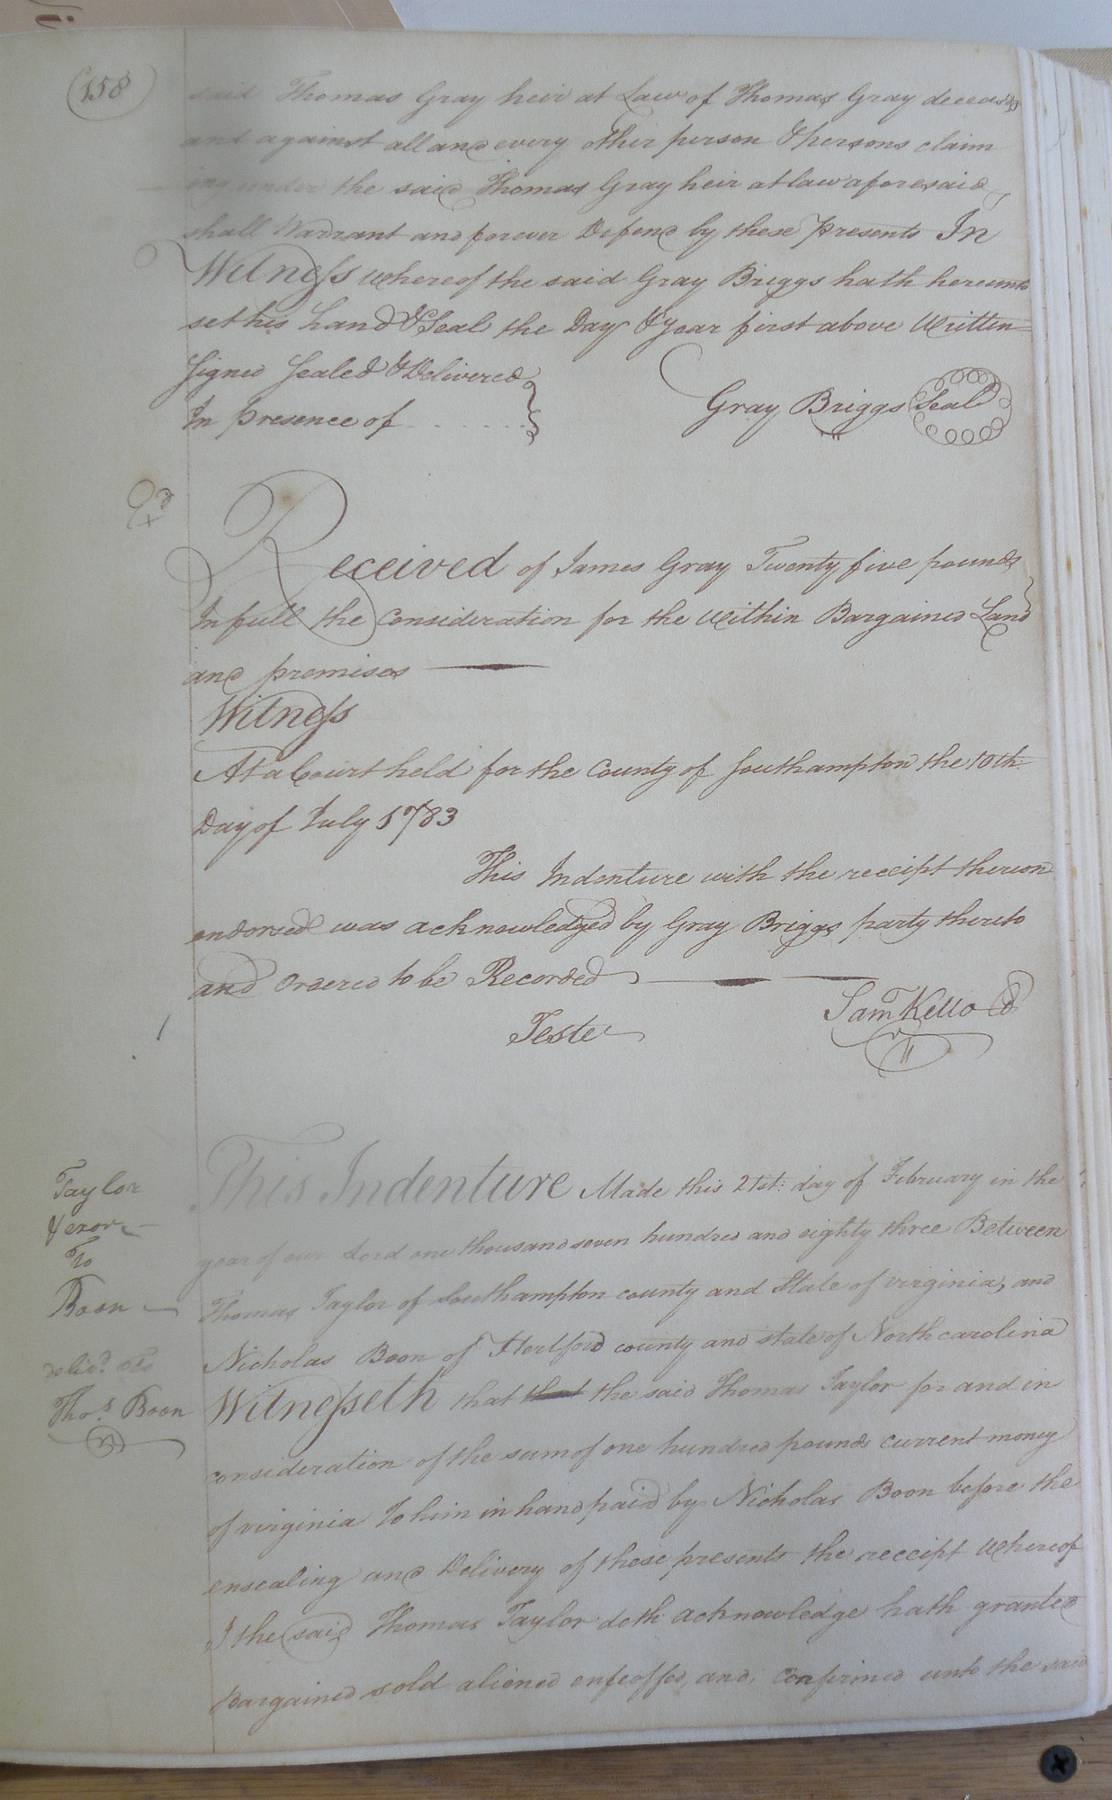 158
said Thomas Gray heir at Law of Thomas Gray deceas'd
and against all and every other person & persons claim
ing under the said Thomas Gray heir at law aforesaid
shall Warrant and forever Defend by these Presents In
Witness whereof the said Gray Briggs hath hereunto
set his hand & Seal the Day & Year first above Written
Signed Sealed & Delivered
In presence of
Gray Briggs Seal
Received of James Gray Twenty five pounds
In full the Consideration for the Within Bargained Land
and premises
Witness
At a Court held for the County of Southampton the 10th
Day of July 1783
This Indenture with the receipt thereon
endorsed was acknowledged by Gray Briggs party thereto
and Ordered to be Recorded
Teste
Sam Kello
Taylor
To
Boon
deliv.d
Tho.s Boon
This Indenture Made this 21st: day of February in the
year of our Lord one thousand seven hundred and eighty three Between
Thomas Taylor of Southampton county and State of virginia, and
Nicholas Boon of Hertford county and state of North carolina
Witnesseth that that the said Thomas Taylor for and in
consideration of the sum of one hundred pounds current money
of virginia To him in hand paid by Nicholas Boon before the
ensealing and Delivery of these presents the receipt Whereof
I the said Thomas Taylor doth acknowledge hath granted
Bargained sold aliened enfeoffed, and, Confirmed unto the said